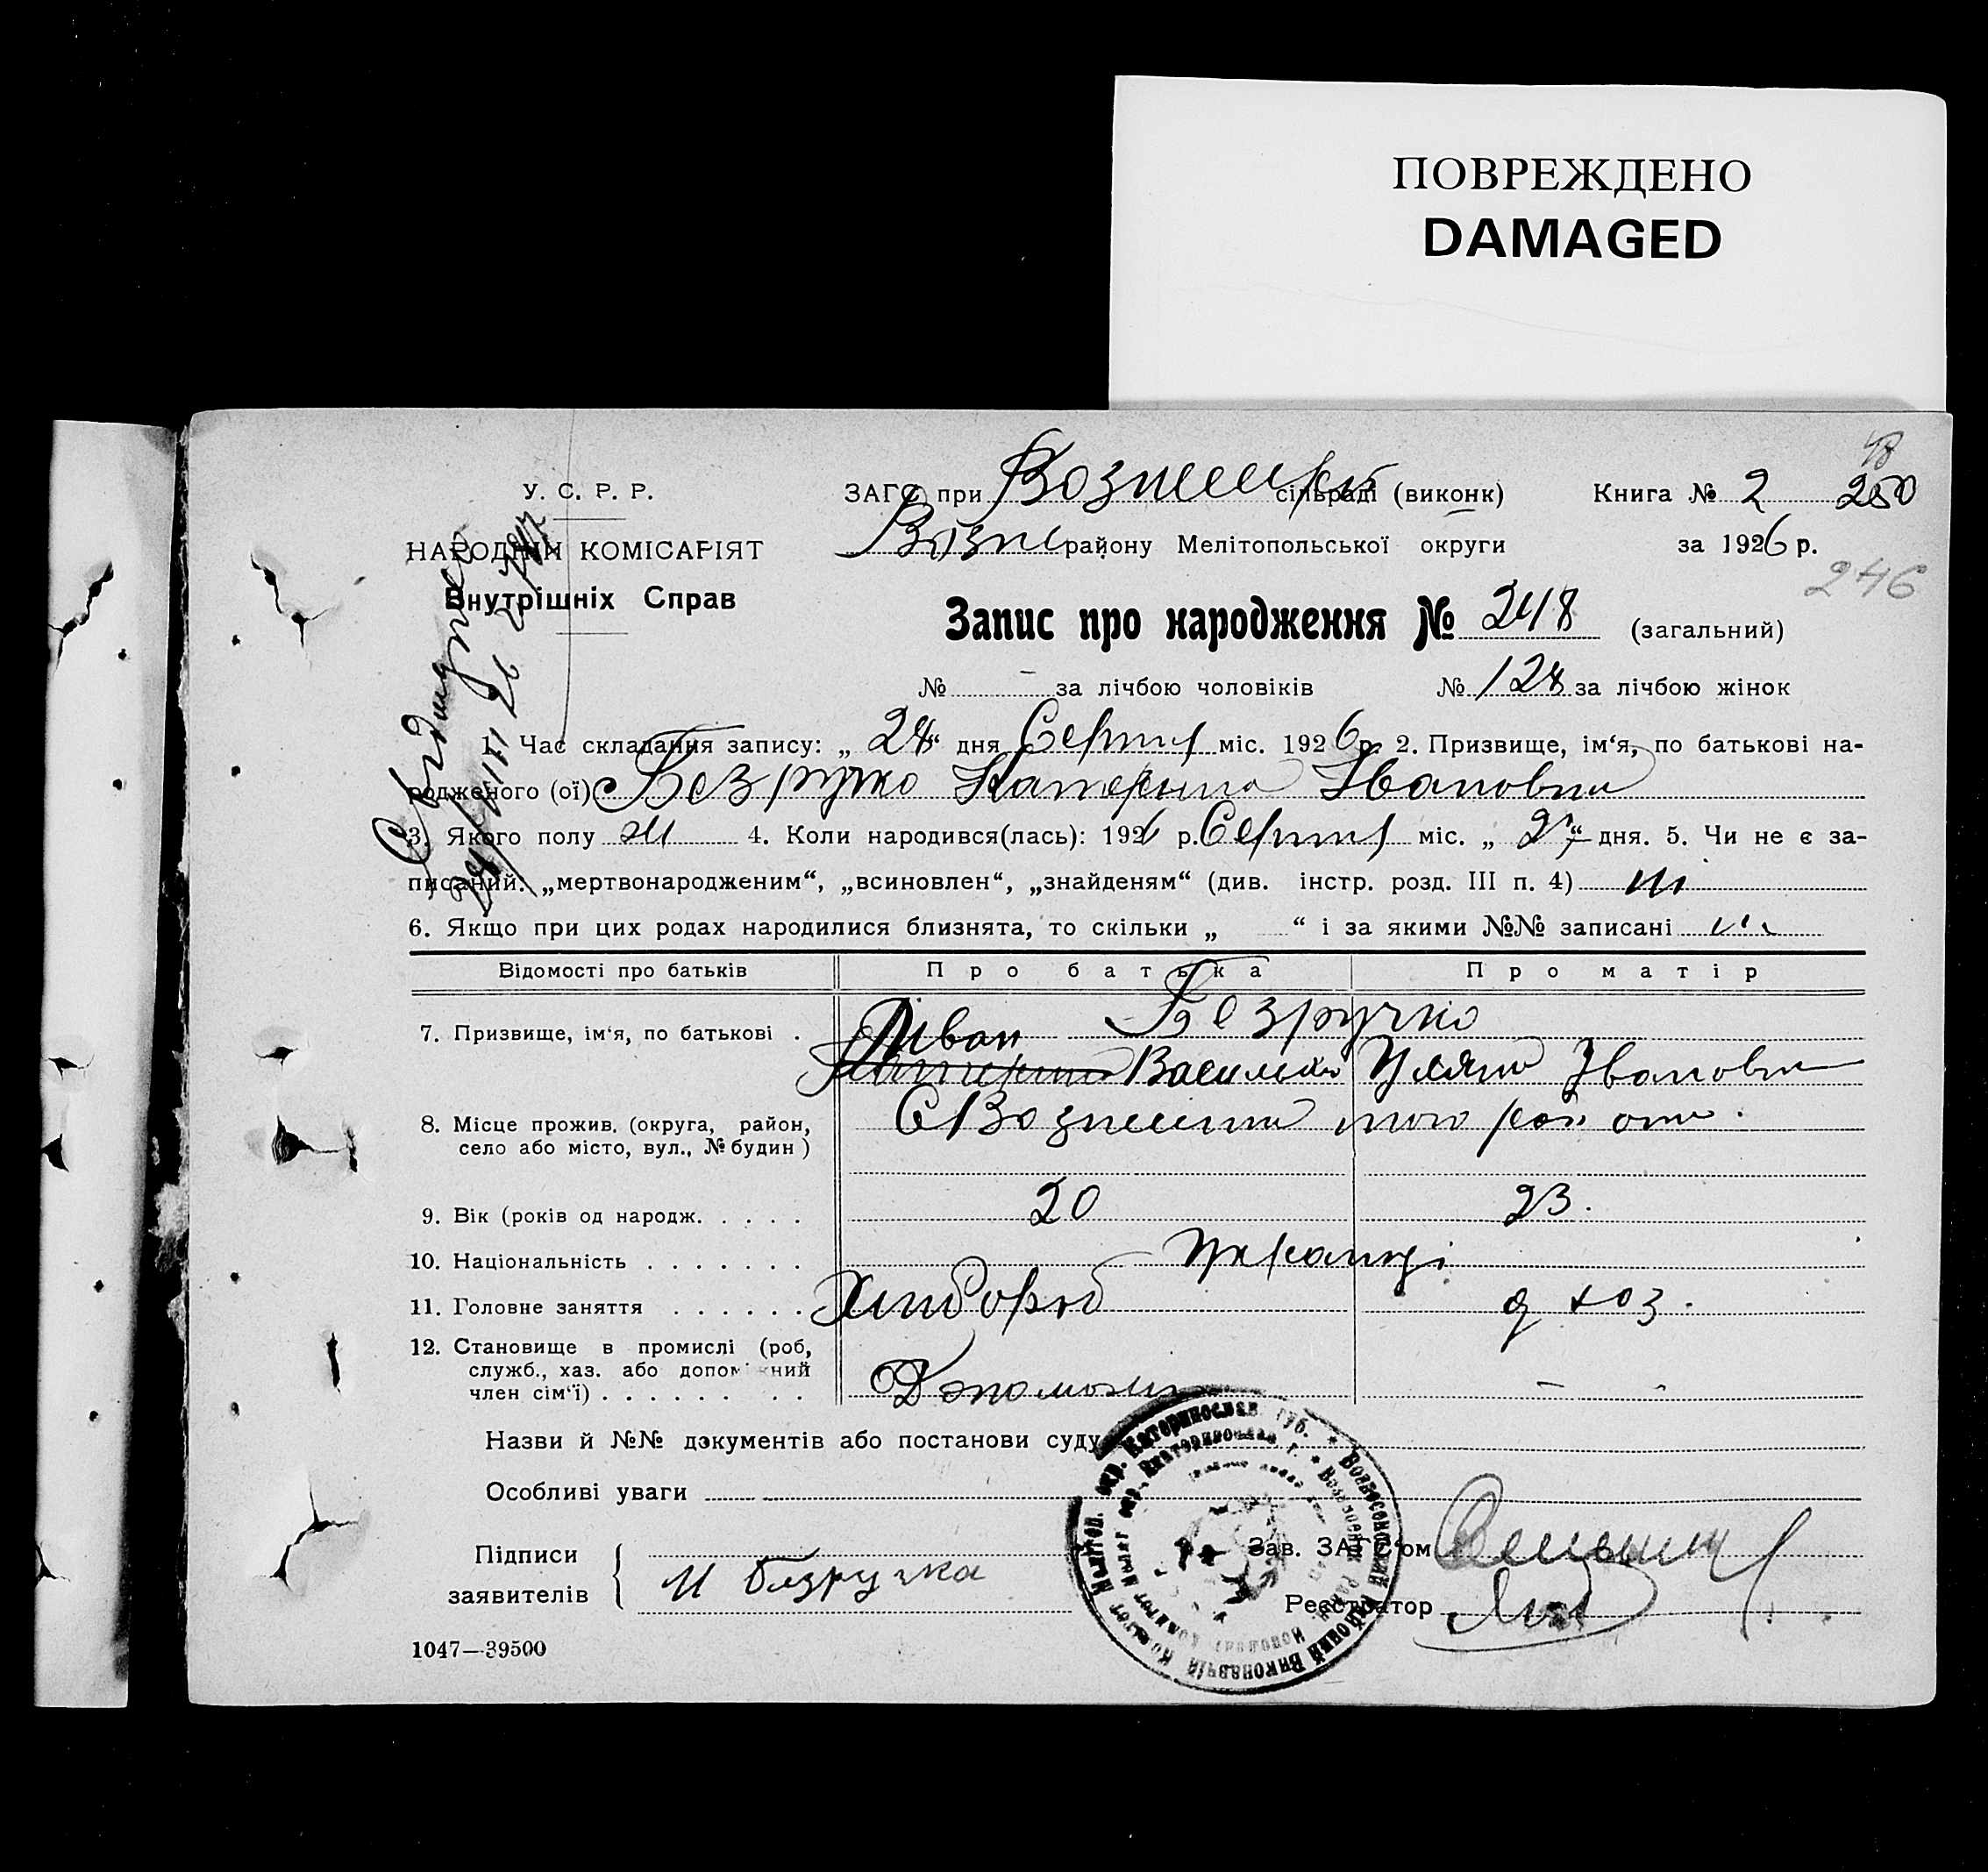 ПОВРЕЖДЕНО
DAMAGED
У. С. Р. Р.
НАРОДНІЙ КОМІСАРІЯТ
Внутрішніх Справ
ЗАГС при сільраді (виконк)
Книга № 2 250
Возне району Мелітопольської округи
за 1926 р.
246
Запис про народження № 248 (загальний)
№ - за лічбою чоловіків № 128 за лічбою жінок
1. Час складання запису: „ 28 “ дня Серпня міс. 1926 р. 2. Призвище, ім‘я, по батькові на-
родженого (ої) Безручко Катерина Івановна
3. Якого полу ж 4. Коли народився(лась): 1926 р. Серпня міс. „ 27 “ дня. 5. Чи не є за-
писаний: „мертвонародженим“, „всиновлен“, „знайденям“ (див. інстр. розд. III п. 4) ні
6. Якщо при цих родах народилися близнята, то скільки „ “ і за якими №№ записані ні
Відомості про батьків Про батька Про матір
7. Призвище, ім‘я, по батькові . Іван Безручко
Василь Уляна Івановна
8. Місце прожив. (округа, район,
село або місто, вул., № будин)
того району
9. Вік (років од народж. . . . . 20 23.
10. Національність . . . . . . . Українці
11. Головне заняття . . . . . . Хлібороб д хоз.
12. Становище в промислі (роб,
служб., хаз. або допоміжний
член сім‘ї) . . . . . . . . Допоможн - -
Назви й №№ документів або постанови суду
Особливі уваги
Підписи
заявителів
И Безручка
Зав. ЗАГС‘ом
Реєстратор
1047—39500